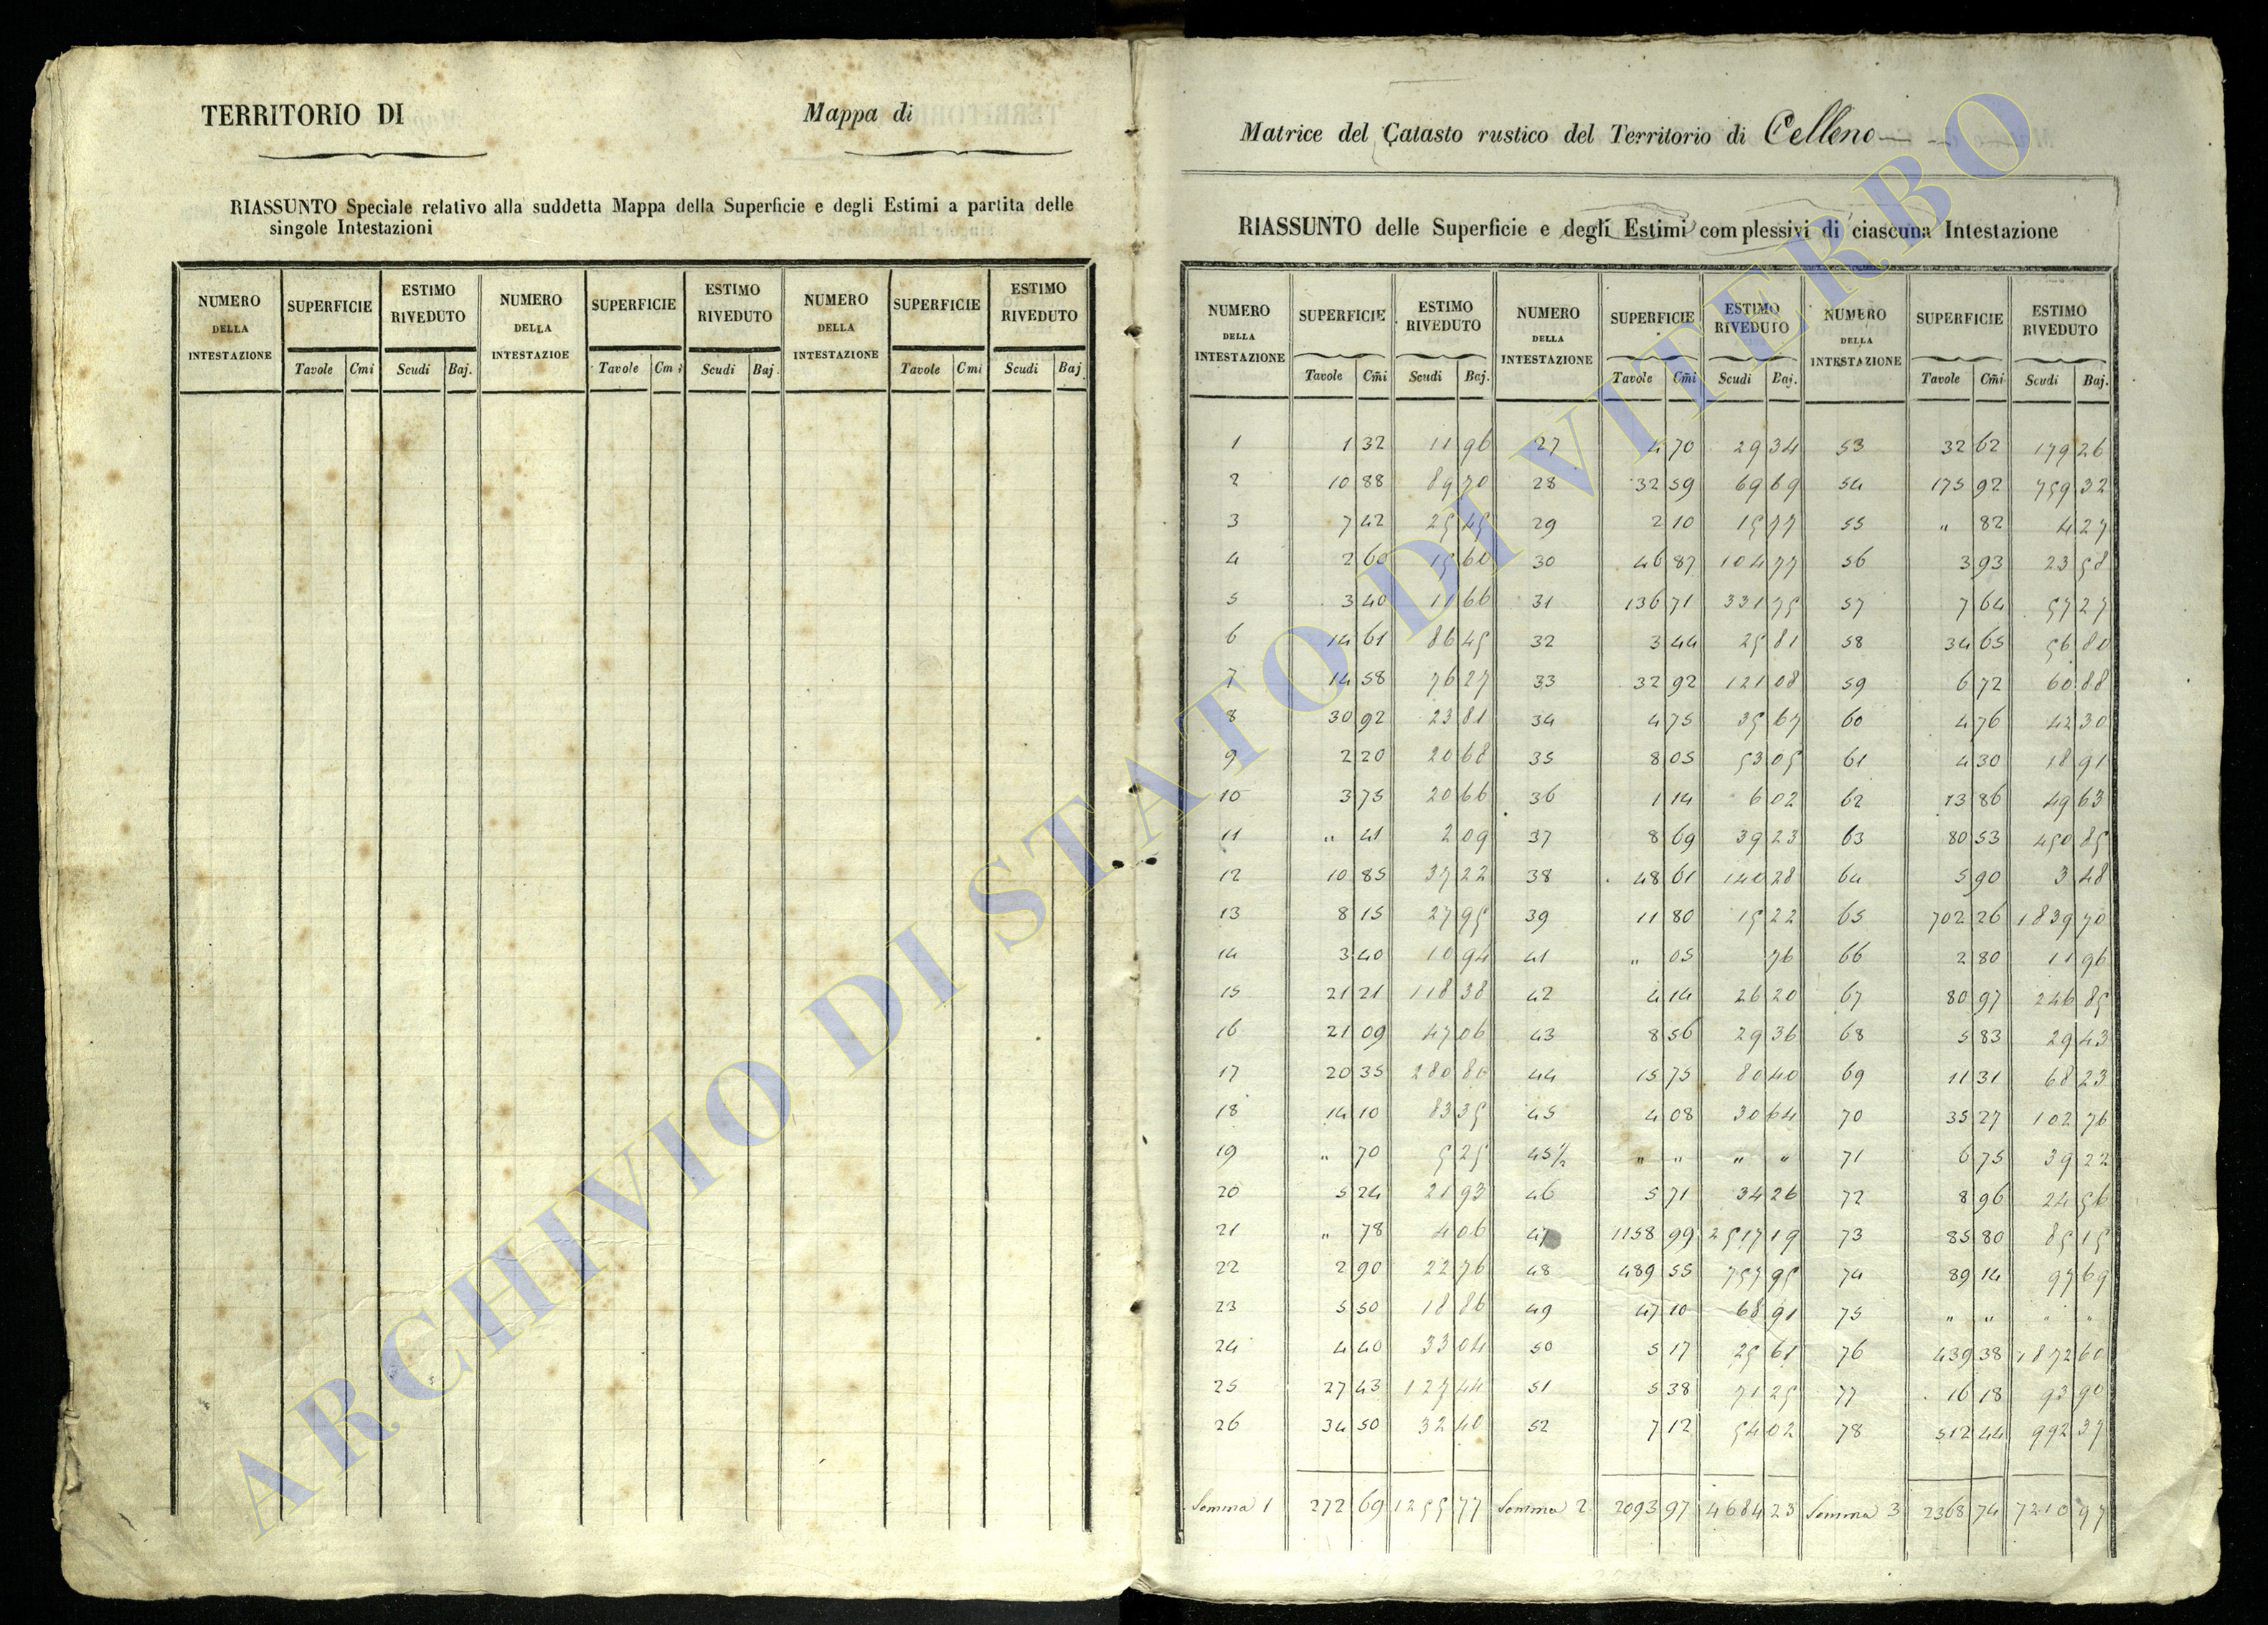 TERRITORIO DI
Mappa di
RIASSUNTO Speciale relativo alla suddetta Mappa della Superficie e degli Estimi a partita delle
singole Intestazioni
NUMERO DELLA INTESTAZIONE SUPERFICIE ESTIMO RIVEDUTO NUMERO DELLA INTESTAZIOE SUPERFICIE ESTIMO RIVEDUTO NUMERO DELLA INTESTAZIONE SUPERFICIE ESTIMO RIVEDUTO
Tavole Cmi Scudi Baj. Tavole Cmi Scudi Baj. Tavole Cmi Scudi Baj.
Matrice del Catasto rustico del Territorio di Celleno
RIASSUNTO delle Superficie e degli Estimi complessivi di ciascuna Intestazione
NUMERO DELLA INTESTAZIONE SUPERFICIE ESTIMO RIVEDUTO NUMERO DELLA INTESTAZIONE SUPERFICIE ESTIMO RIVEDUTO NUMERO DELLA INTESTAZIONE SUPERFICIE ESTIMO RIVEDUTO
Tavole Cm̃i Scudi Baj. Tavole Cm̃i Scudi Baj. Tavole Cm̃i Scudi Baj.
1 1 32 11 96 27 4 70 29 34 53 32 62 179 26
2 10 88 89 70 28 32 59 69 69 54 175 92 759 32
3 7 42 25 45 29 2 10 15 77 55 " 82 4 27
4 2 60 15 60 30 46 87 104 77 56 3 93 23 58
5 3 40 11 66 31 136 71 331 75 57 7 64 57 27
6 14 61 86 45 32 3 44 25 81 58 34 65 56 80
7 14 58 76 27 33 32 92 121 08 59 6 72 60 88
8 30 92 23 81 34 4 75 35 67 60 4 76 42 30
9 2 20 20 68 35 8 05 53 05 61 4 30 18 91
10 3 75 20 66 36 1 14 6 02 62 13 86 49 63
11 " 41 2 09 37 8 69 39 23 63 80 53 450 85
12 10 85 37 22 38 48 61 140 28 64 5 90 3 48
13 8 15 27 95 39 11 80 15 22 65 702 26 1839 70
14 3 40 10 94 41 " 05 76 66 2 80 11 96
15 21 21 118 38 42 4 14 26 20 67 80 97 246 85
16 21 09 47 06 43 8 56 29 36 68 5 83 29 43
17 20 35 280 44 15 75 80 40 69 11 31 68 23
18 14 10 83 35 45 4 08 30 64 70 35 27 102 76
19 " 70 5 25 45½ " " " " 71 6 75 39 22
20 5 24 21 93 46 5 71 34 26 72 8 96 24 56
21 " 78 4 06 47 1158 99 2517 19 73 85 80 85 15
22 2 90 22 76 48 489 55 757 95 74 89 14 97 69
23 5 50 18 86 49 47 10 68 91 75 " " " "
24 4 40 33 04 50 5 17 25 61 76 439 38 1872 60
25 27 43 127 44 51 5 38 71 25 77 16 18 93 90
26 34 50 32 40 52 7 12 54 02 78 512 44 992 37
Somma 1 272 69 1255 77 Somma 2 2093 97 4684 23 Somma 3 2368 74 7210 97
ARCHIVIO DI STATO DI VITERBO